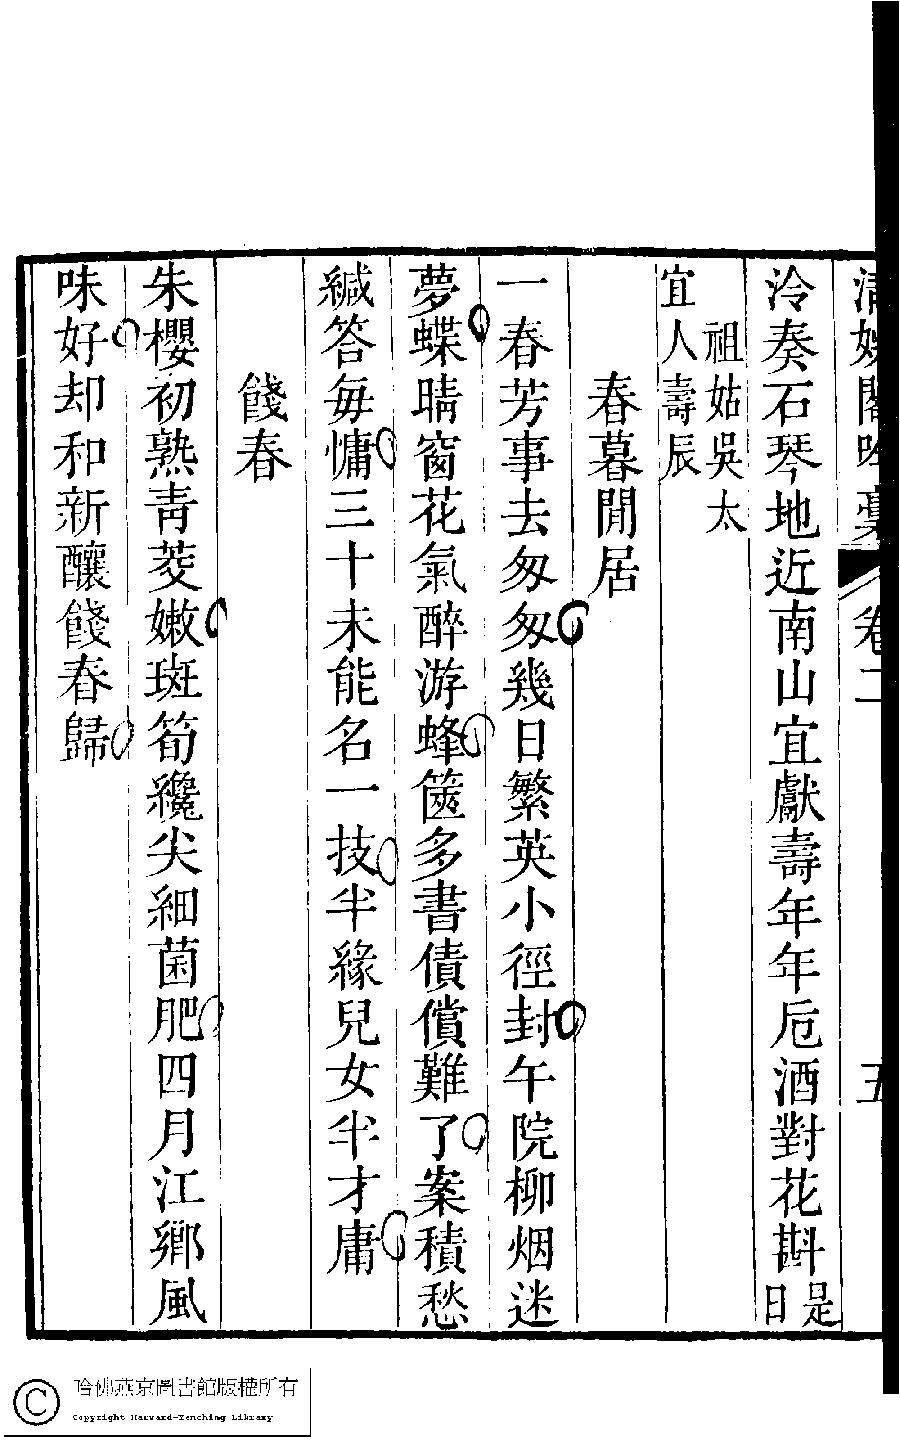 清娛閣吟藁 卷二 五
泠奏石琴地近南山宜獻壽年年卮酒對花斟是日
祖姑吳太
宜人壽辰
春暮閒居
一春芳事去匆匆幾日繁英小徑封午院柳烟迷
夢蝶晴窗花氣醉游蜂篋多書債償難了案積愁
緘答每慵三十未能名一技半緣兒女半才庸
餞春
朱櫻初熟青茭嫩斑筍纔尖細菌肥四月江鄉風
味好却和新釀餞春歸
哈佛燕京圖書館版權所有
Copyright Harvard-Yenching Library